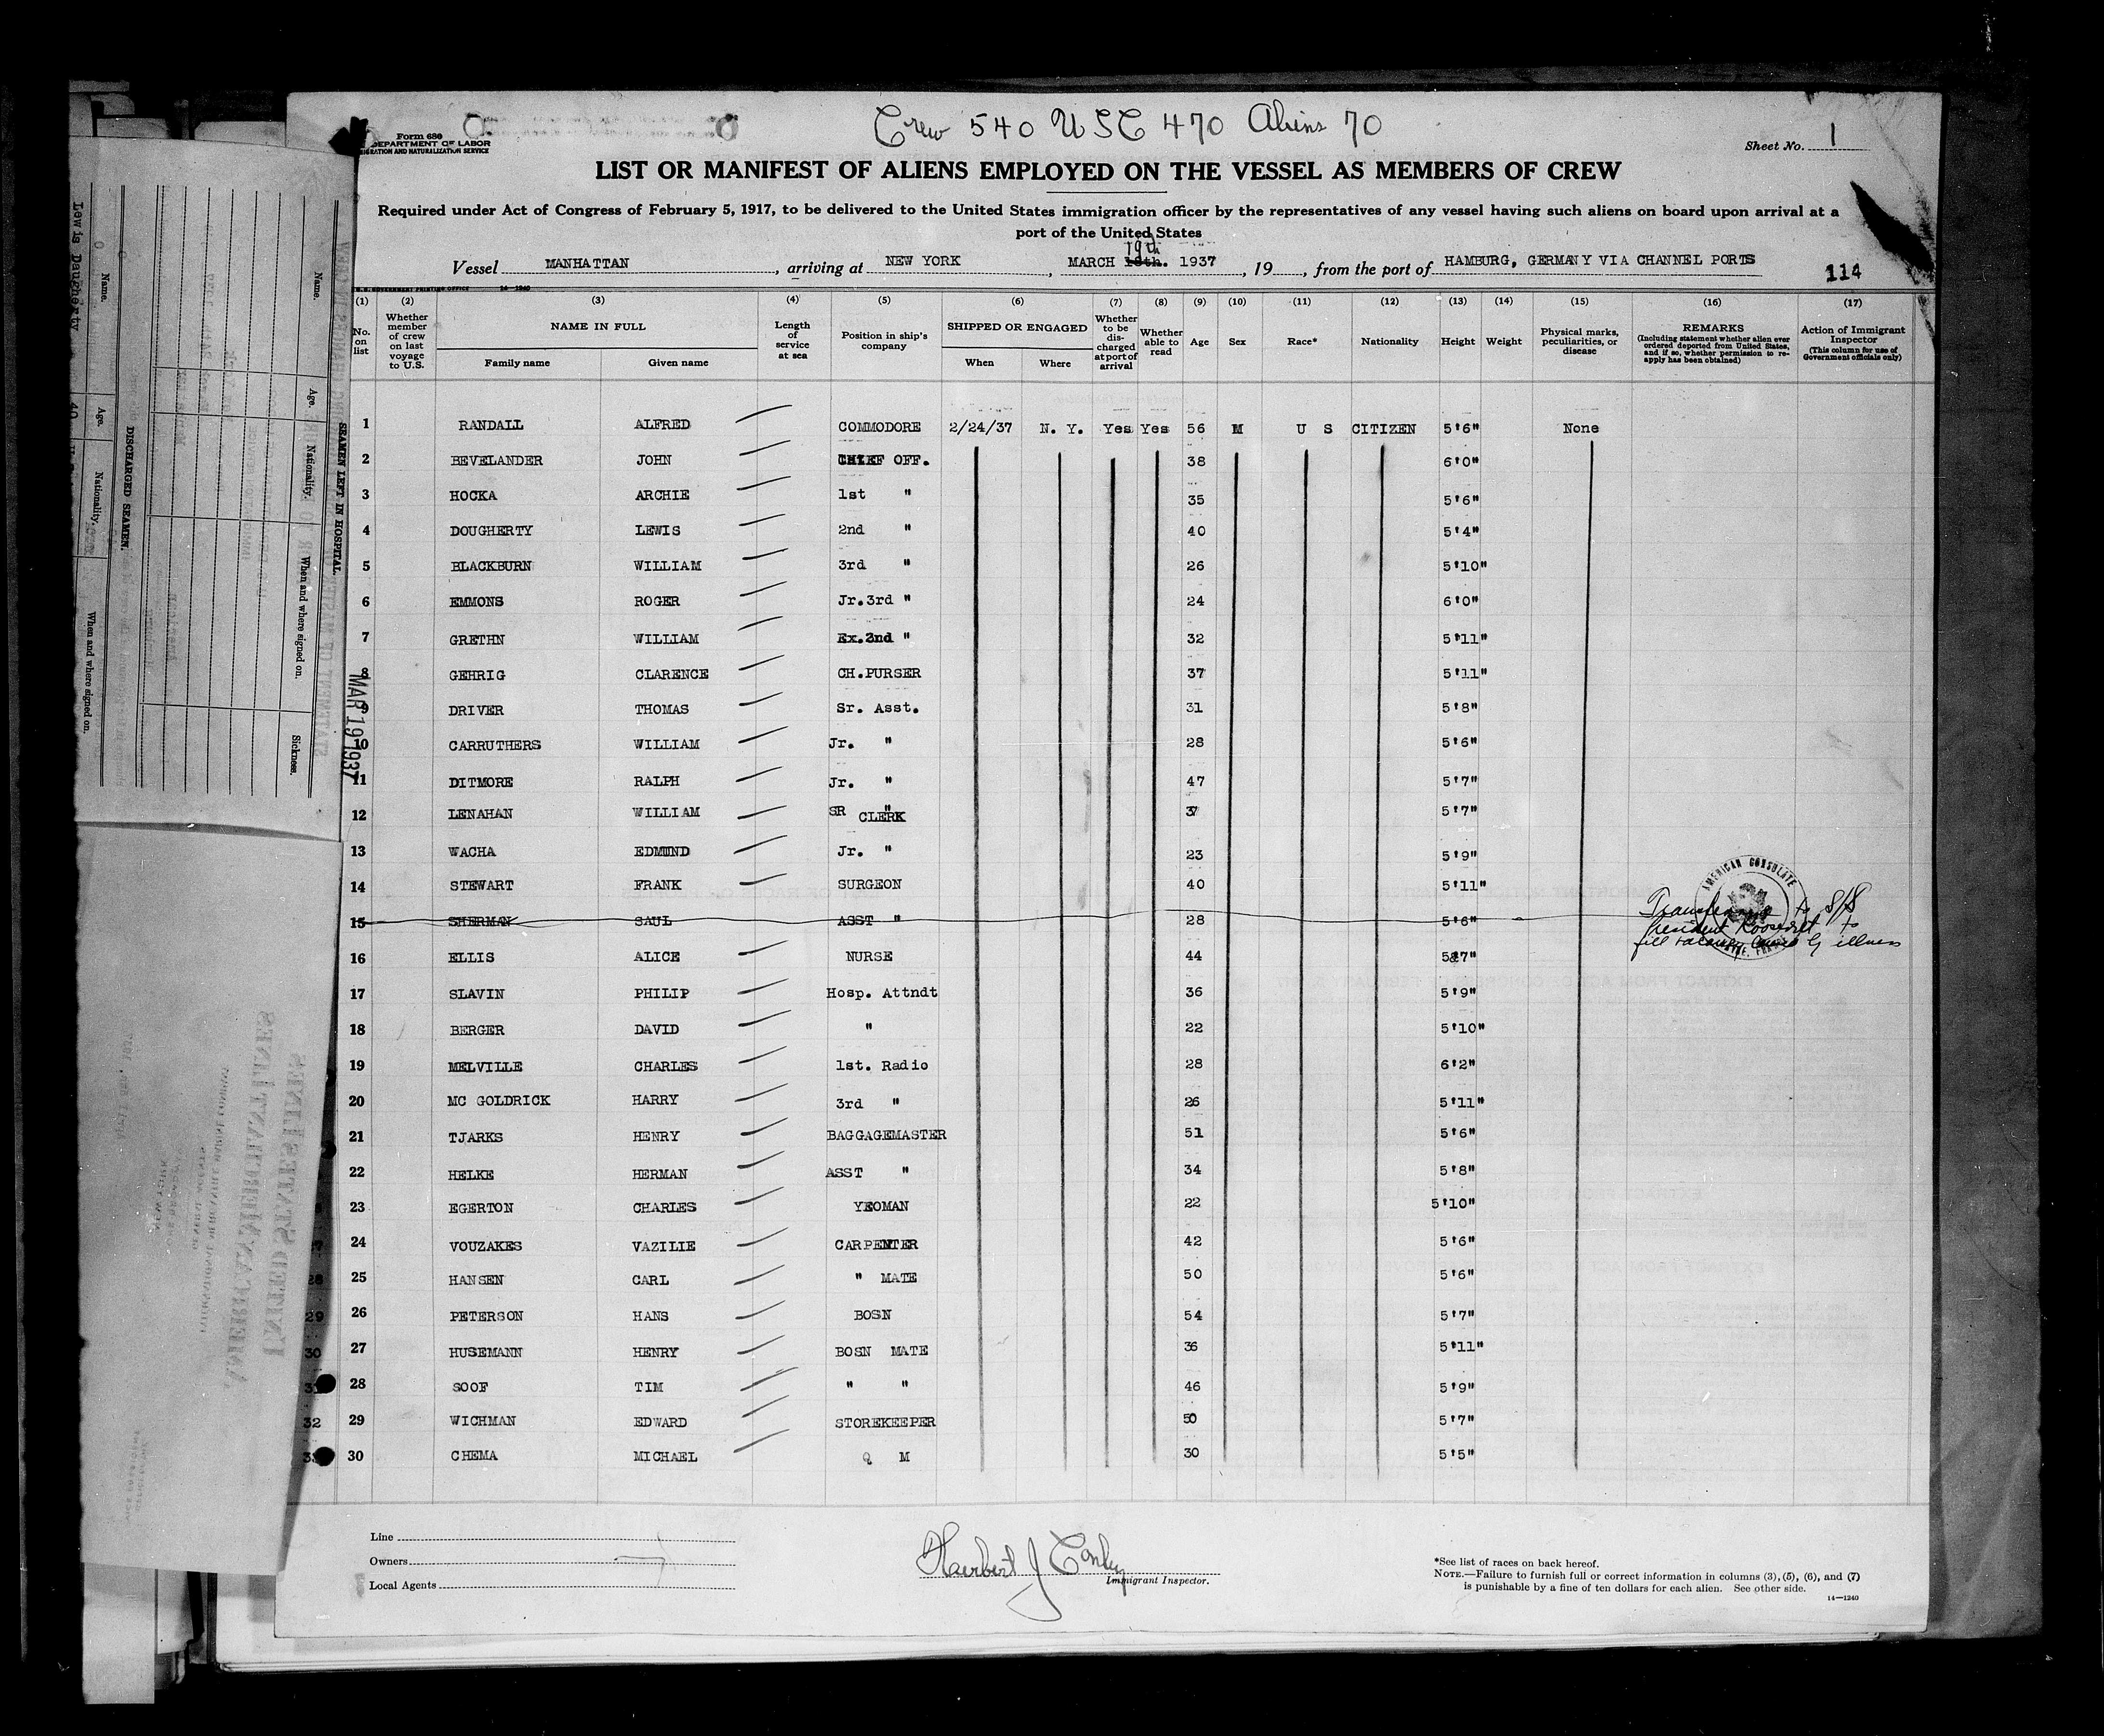 Crew 540 USC 470 Aliens 70
Form 680
DEPARTMENT OF LABOR
IMMIGRATION AND NATURALIZATION SERVICE
Sheet No. 1
LIST OR MANIFEST OF ALIENS EMPLOYED ON THE VESSEL AS MEMBERS OF CREW
Required under Act of Congress of February 5, 1917, to be delivered to the United States immigration officer by the representatives of any vessel having such aliens on board upon arrival at a
port of the United States
19th
Vessel MANHATTAN, arriving at NEW YORK, MARCH 18th. 1937, 19, from the port of HAMBURG, GERMANY VIA CHANNEL PORTS
114
(1) (2) (3) (4) (5) (6) (7) (8) (9) (10) (11) (12) (13) (14) (15) (16) (17)
No. on list
Whether member of crew on last voyage to U.S.
NAME IN FULL
Family name
Given name
Length of service at sea
Position in ship's company
SHIPPED OR ENGAGED
When
Where
Whether to be discharged at port of arrival
Whether able to read
Age
Sex
Race*
Nationality
Height
Weight
Physical marks, peculiarities, or disease
REMARKS
(Including statement whether alien ever ordered deported from United States, and if so, whether permission to reapply has been obtained)
Action of Immigrant Inspector
(This column for use of Government officials only)
1 RANDALL ALFRED COMMODORE 2/24/37 N. Y. Yes Yes 56 M U S CITIZEN 5'6" None
2 BEVELANDER JOHN CHIEF OFF. 38 6'0"
3 HOCKA ARCHIE 1st " 35 5'6"
4 DOUGHERTY LEWIS 2nd " 40 5'4"
5 BLACKBURN WILLIAM 3rd " 26 5'10"
6 EMMONS ROGER Jr.3rd " 24 6'0"
7 GRETHN WILLIAM Ex.2nd " 32 5'11"
8 GEHRIG CLARENCE CH.PURSER 37 5'11"
9 DRIVER THOMAS Sr. Asst. 31 5'8"
10 CARRUTHERS WILLIAM Jr. " 28 5'6"
11 DITMORE RALPH Jr. " 47 5'7"
12 LENAHAN WILLIAM SR " CLERK 37 5'7"
13 WACHA EDMUND Jr. " 23 5'9"
14 STEWART FRANK SURGEON 40 5'11"
15 SHERMAN SAUL ASST " 28 5'6" Transferring to S/S
President Roosevelt to
fill vacancy caused by illness
AMERICAN CONSULATE
16 ELLIS ALICE NURSE 44 5'7"
17 SLAVIN PHILIP Hosp. Attndt 36 5'9"
18 BERGER DAVID " 22 5'10"
19 MELVILLE CHARLES 1st. Radio 28 6'2"
20 MC GOLDRICK HARRY 3rd " 26 5'11"
21 TJARKS HENRY BAGGAGEMASTER 51 5'6"
22 HELKE HERMAN ASST " 34 5'8"
23 EGERTON CHARLES YEOMAN 22 5'10"
24 VOUZAKES VAZILIE CARPENTER 42 5'6"
25 HANSEN CARL " MATE 50 5'6"
26 PETERSON HANS BOSN 54 5'7"
27 HUSEMANN HENRY BOSN MATE 36 5'11"
28 SOOF TIM " " 46 5'9"
29 WICHMAN EDWARD STOREKEEPER 50 5'7"
30 CHEMA MICHAEL Q M 30 5'5"
MAR 19 1937
Line
Owners
Local Agents
Herbert J Conley
Immigrant Inspector.
*See list of races on back hereof.
NOTE.—Failure to furnish full or correct information in columns (3), (5), (6), and (7)
is punishable by a fine of ten dollars for each alien. See other side.
14—1240
SEAMEN LEFT IN HOSPITAL.
Name. Age. Nationality. When and where signed on. Sickness.
DISCHARGED SEAMEN.
Name. Age. Nationality. When and where signed on.
Lewis Daugherty 40
UNITED STATES LINES
AMERICAN MERCHANT LINES
28
29
30
32